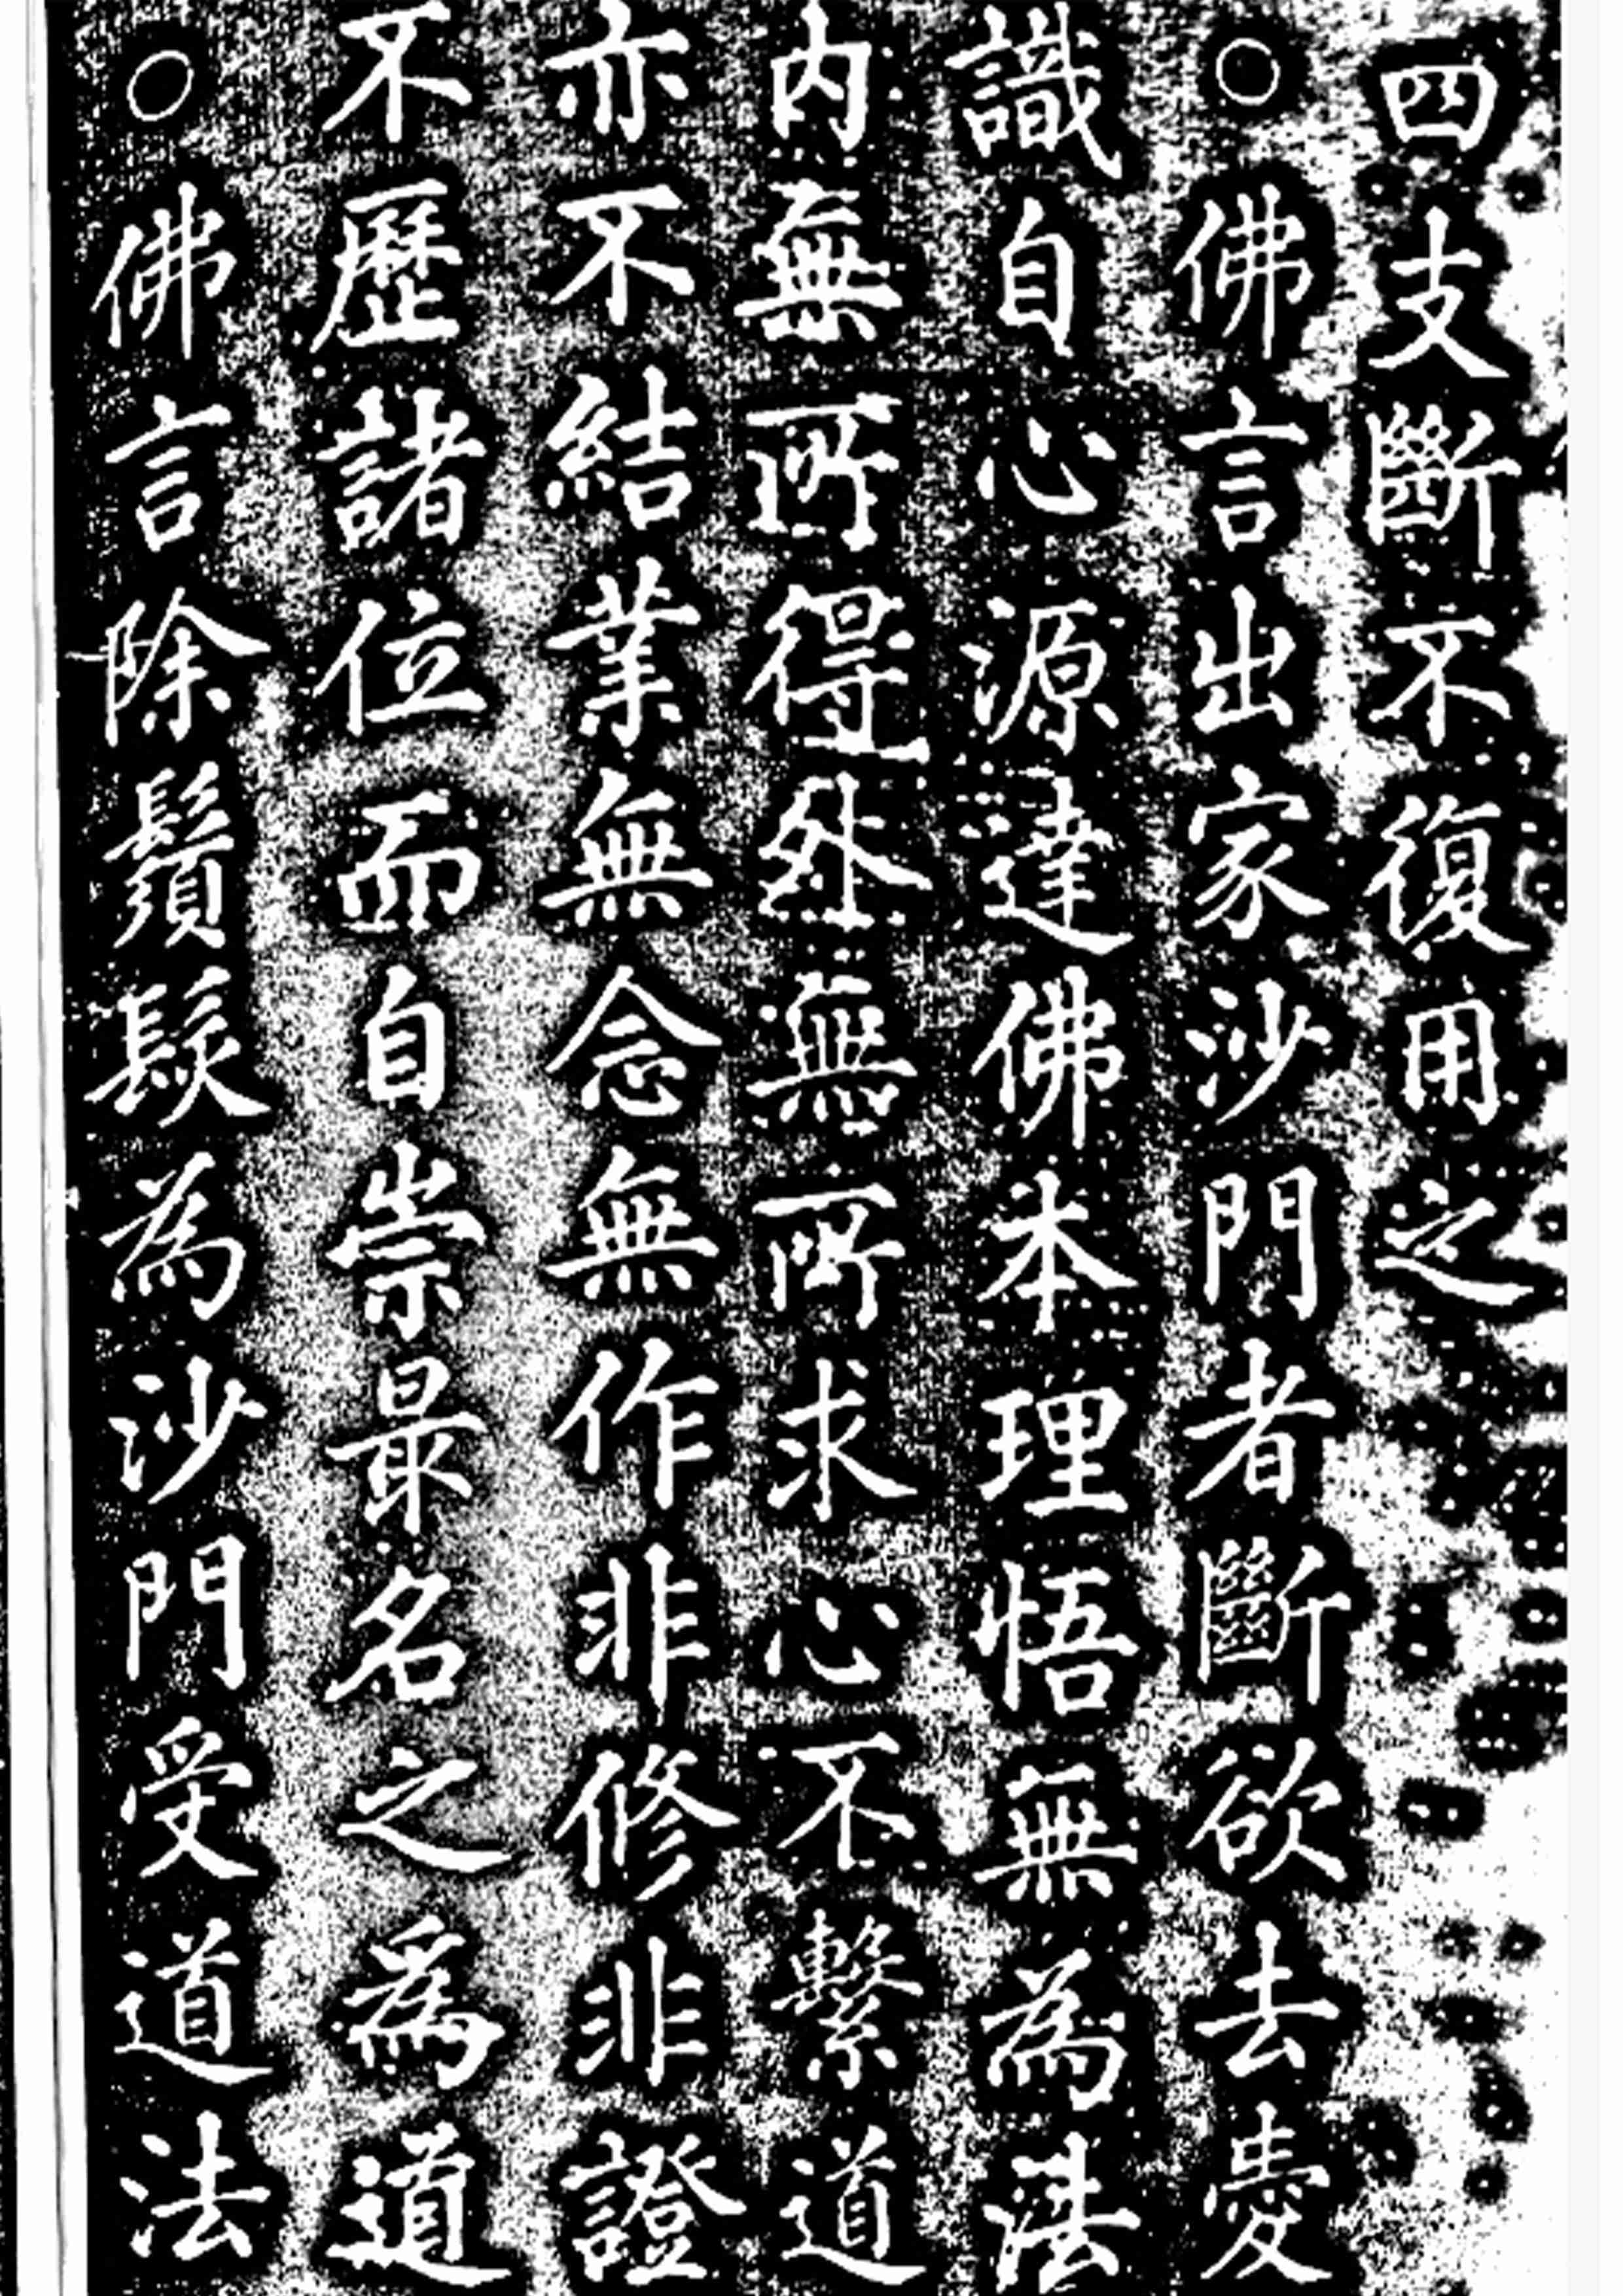 四支斷不復用之
○佛言出家沙門者斷欲去愛
識自心源達佛本理悟無為法
內無所得外無所求心不繫道
亦不結業無念無作非修非證
不歷諸位而自崇最名之為道
○佛言除鬚髮為沙門受道法